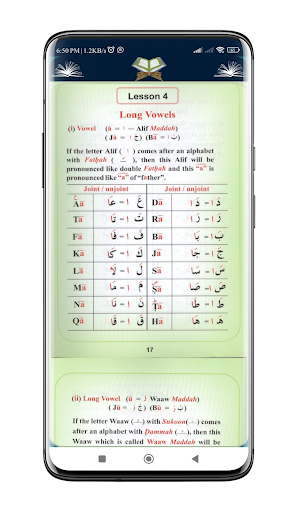 6:50 PM | 1.2KB/s
Lesson 4
Long Vowels
(i) Vowel (ā = ا – Alif Maddah)
(Jā = جَا) (Bā = بَا)
If the letter Alif (ا) comes after an alphabet
with Fatḥah (ـَ), then this Alif will be
pronounced like double Fatḥah and this "a" is
pronounced like "a" of "father".
Joint / unjoint Joint / unjoint
Āā عَ ا = عَا Dā دَ ا = دَا
Tā تَ ا = تَا Rā رَ ا = رَا
Fā فَ ا = فَا Bā بَ ا = بَا
Kā كَ ا = كَا Jā جَ ا = جَا
Lā لَ ا = لَا Sā
Mā مَ ا = مَا Ṣā
Nā نَ ا = نَا Ṭā طَ ا = طَا
Qā قَ ا = قَا Hā هَ ا = هَا
17
(ii) Long Vowel (ū = و Waaw Maddah)
(Jū = جُو) (Bū = بُو)
If the letter Waaw (و) with Sukoon(ـْ) comes
after an alphabet with Ḍammah (ـُ), then this
Waaw which is called Waaw Maddah will be